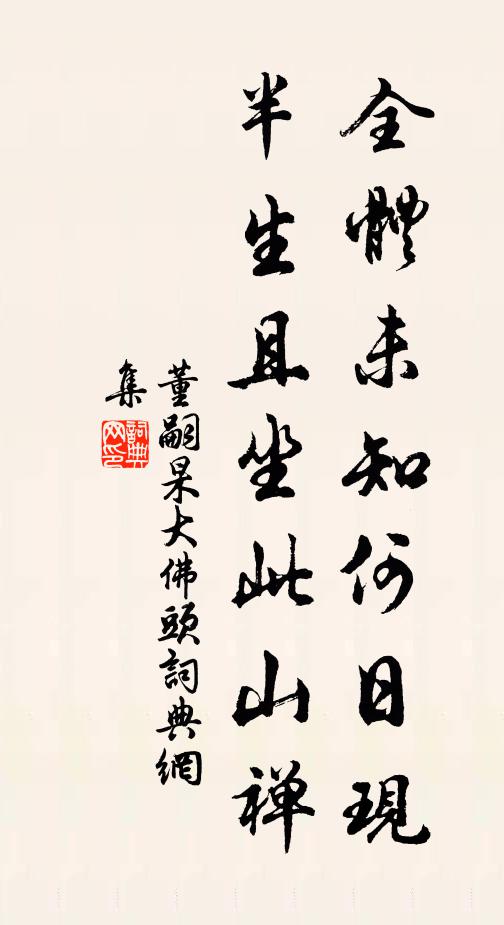 全體未知何日現
半生且坐此山禅
董嗣杲大佛頭詞典網
集
詞典
网印